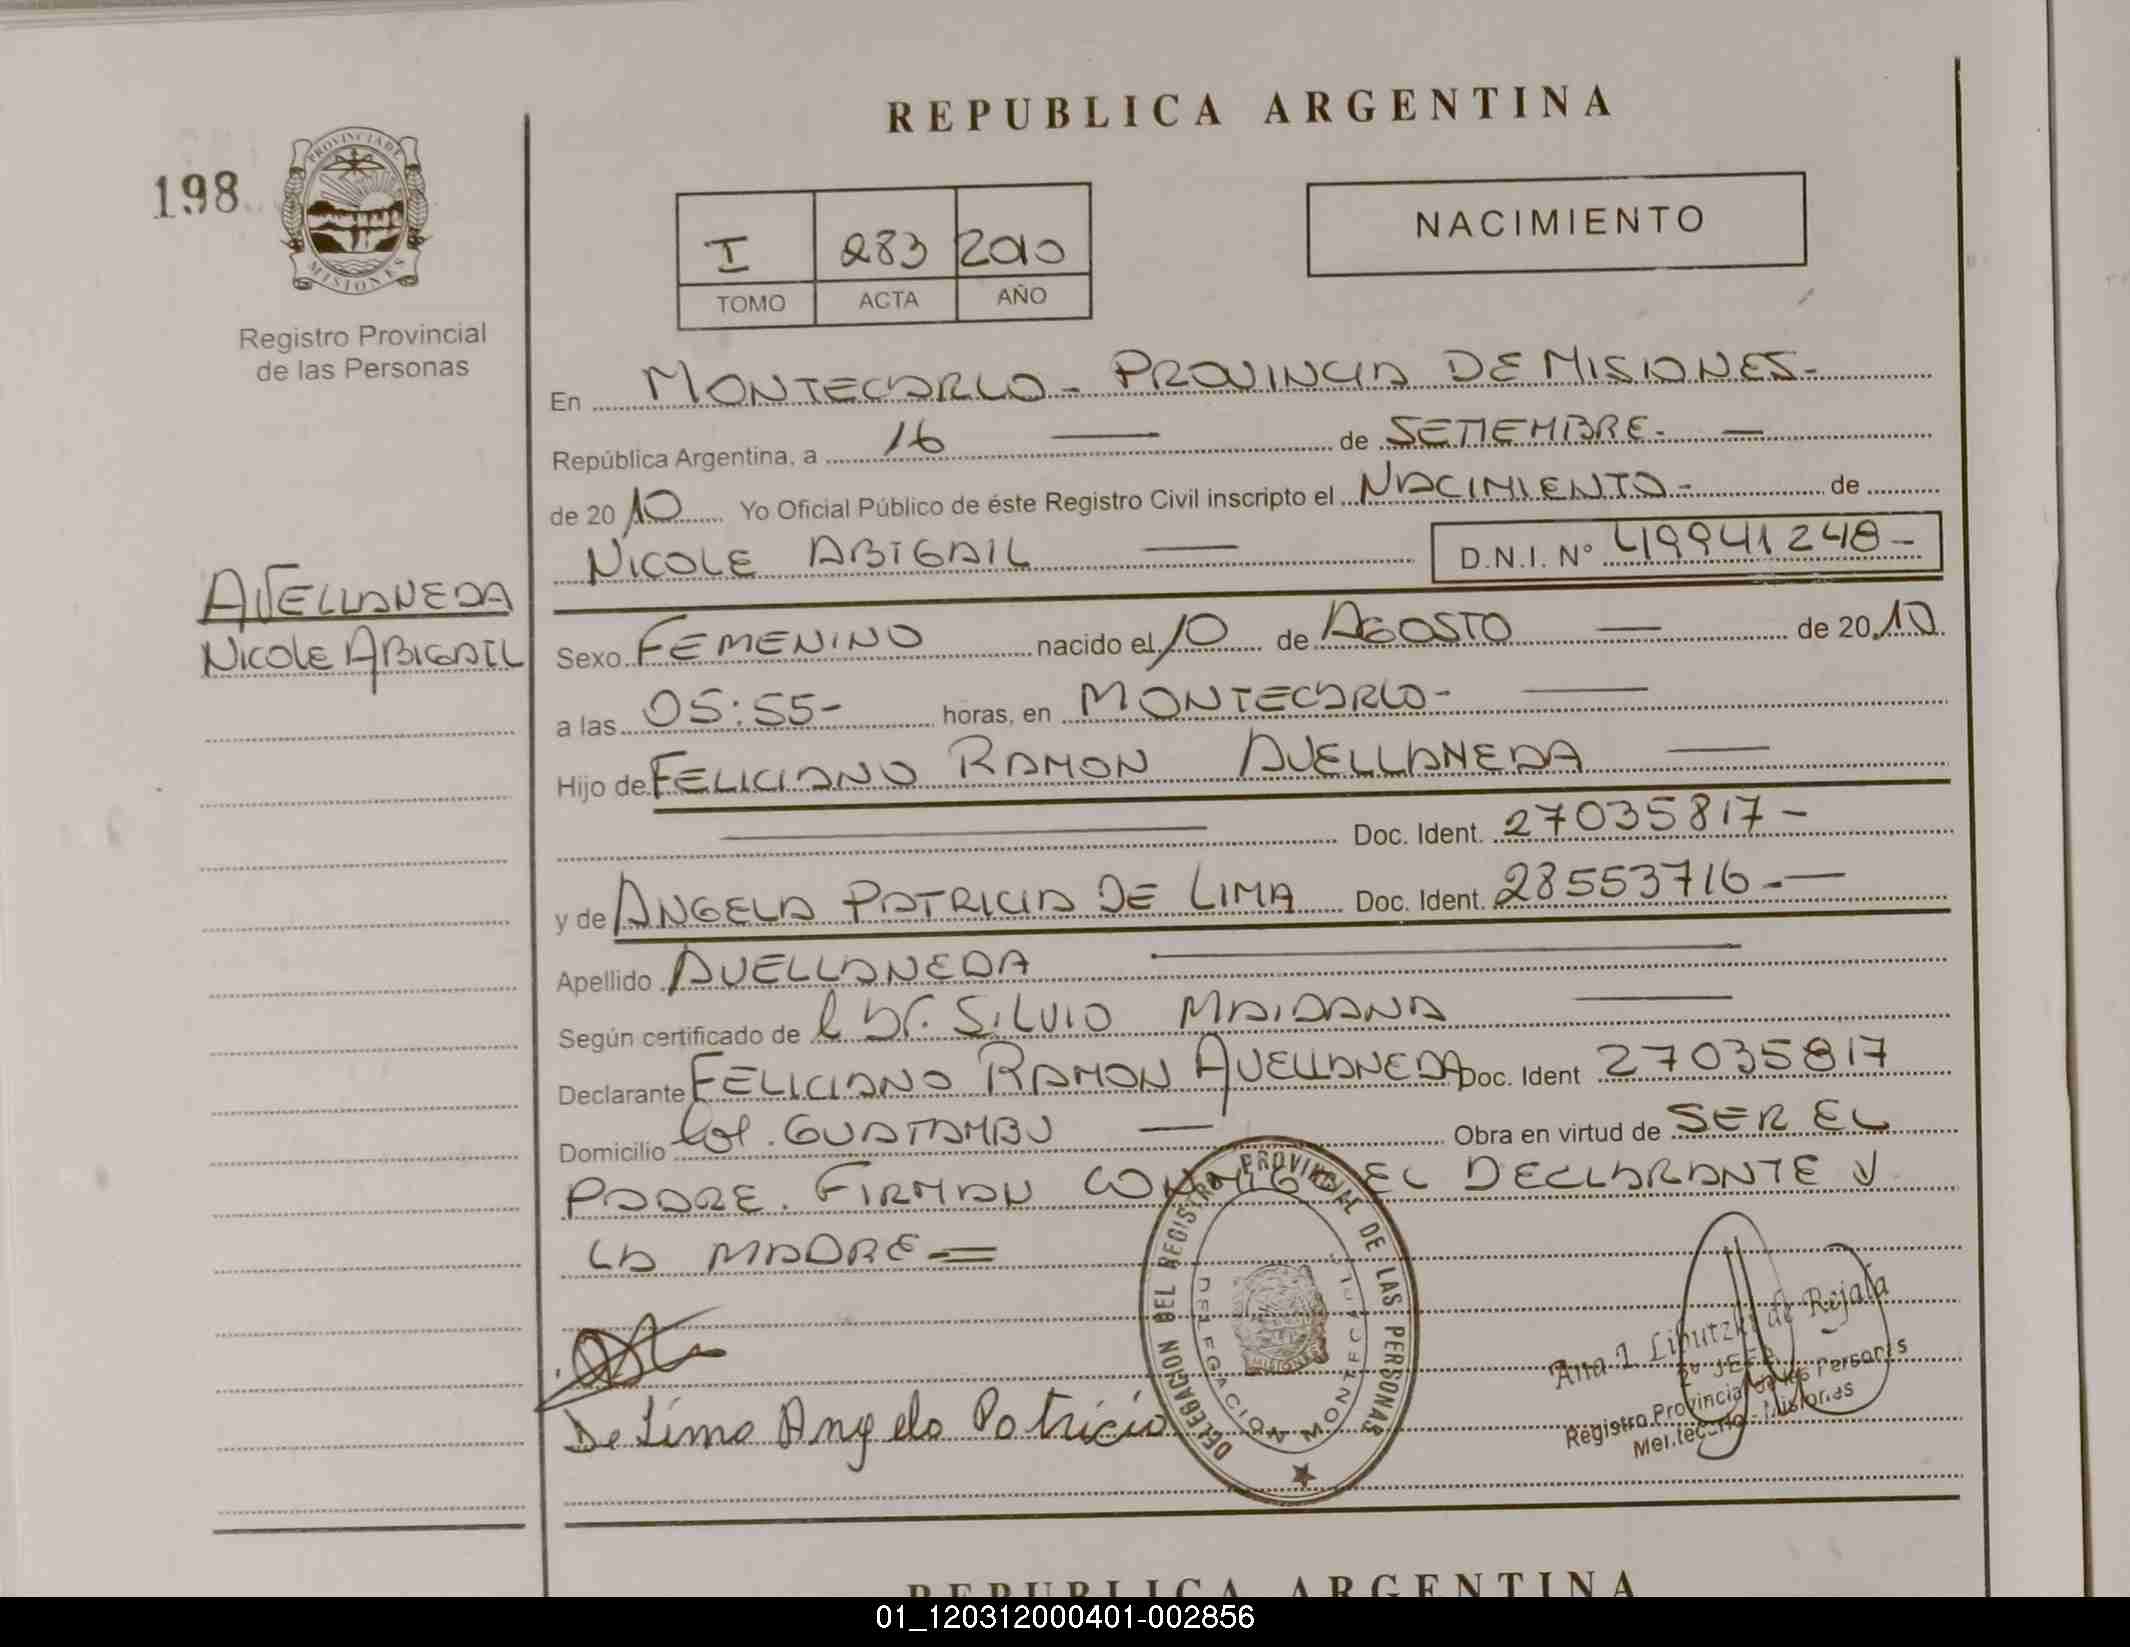 REPUBLICA ARGENTINA
198
PROVINCIA DE MISIONES
Registro Provincial
de las Personas
I 283 2010
TOMO ACTA AÑO
NACIMIENTO
En MONTECARLO - PROVINCIA DE MISIONES -
República Argentina, a 16 — de SETIEMBRE. —
de 2010 Yo Oficial Público de éste Registro Civil inscripto el NACIMIENTO - de
NICOLE ABIGAIL — D.N.I. N° 49941248 -
AVELLANEDA
NICOLE ABIGAIL
Sexo FEMENINO nacido el 10 de AGOSTO — de 2010
a las 05:55 - horas, en MONTECARLO - —
Hijo de FELICIANO RAMON AVELLANEDA —
— Doc. Ident. 27035817 -
y de ANGELA PATRICIA DE LIMA Doc. Ident. 28553716 - —
Apellido AVELLANEDA —
Según certificado de l Dr. SILVIO MAIDANA —
Declarante FELICIANO RAMON AVELLANEDA Doc. Ident 27035817
Domicilio Col. GUATAMBU — Obra en virtud de SER EL
PADRE. FIRMAN CONMIGO EL DECLARANTE Y
LA MADRE =
De Lima Angela Patricia
DELEGACION DEL REGISTRO PROVINCIAL DE LAS PERSONAS
DELEGACION MONTECARLO
MISIONES
Ana I. de Rejala
2º JEFE
Registro Provincial de las Personas
Montecarlo - Misiones
REPUBLICA ARGENTINA
01_120312000401-002856